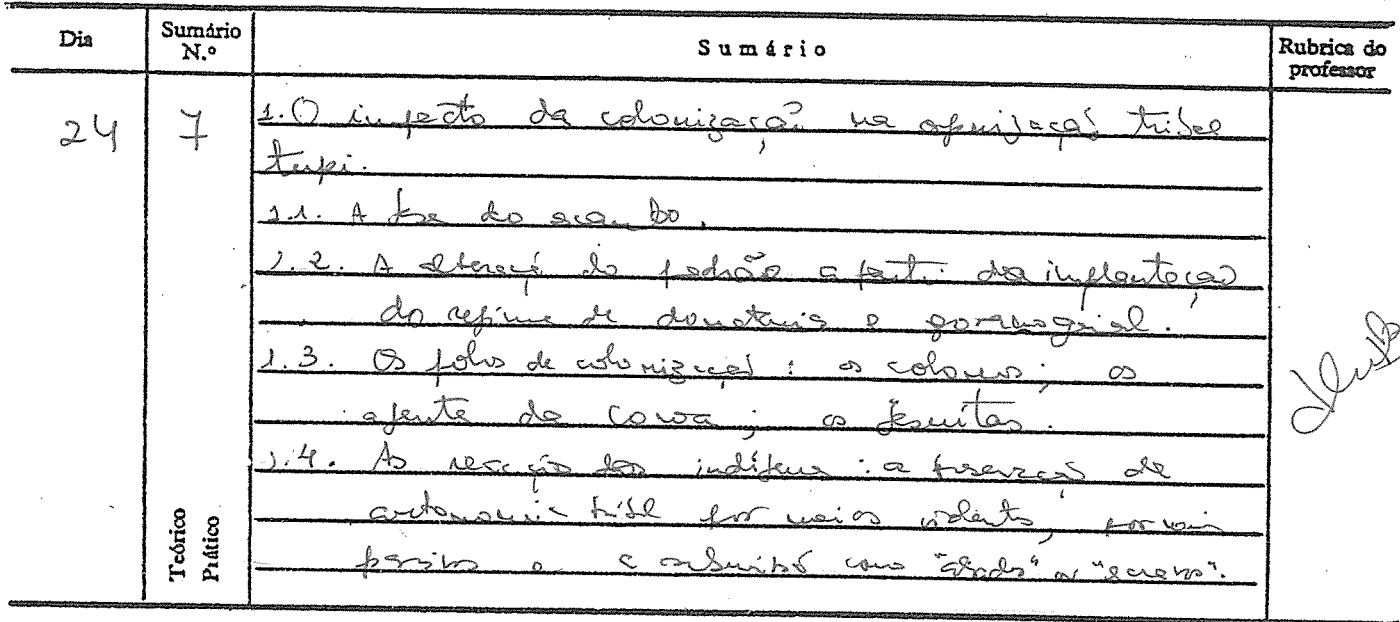 Dia
Sumário N.º
Sumário
Rubrica do professor
24
7
Teórico
Prático
1. O impacto da colonização na organização tribal
tupi.
1.1. A fase do escambo.
1.2. A alteração do padrão a partir da implantação
do regime de donatarias e governo geral.
1.3. Os polos de colonização: os colonos; os
agentes da Coroa; os jesuítas.
1.4. As reações dos indígenas: a preservação de
autonomia tribal por meios violentos, por meios
passivos e a submissão como "aliados" ou "escravos".